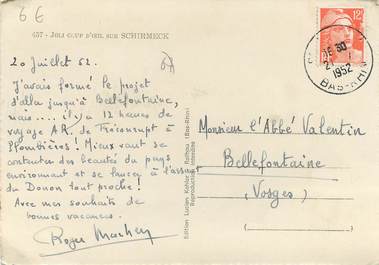 6 6
457 - JOLI COUP D'ŒIL SUR SCHIRMECK
20 Juillet 52.
J'avais formé le projet
d'aller jusqu'à Bellefontaine,
mais.... il y a 12 heures de
voyage A.R. de Fréconrupt à
Plombières ! Mieux vaut se
contenter des beautés du pays
environnant et se lancer à l'assaut
du Donon tout proche !
Avec mes souhaits de
bonnes vacances.
Roger
Edition Lucien Kohler Rothau (Bas-Rhin)
Reproduction interdite
12F
15 30
1952
BAS-RHIN
Monsieur l'Abbé Valentin
Bellefontaine
(Vosges)